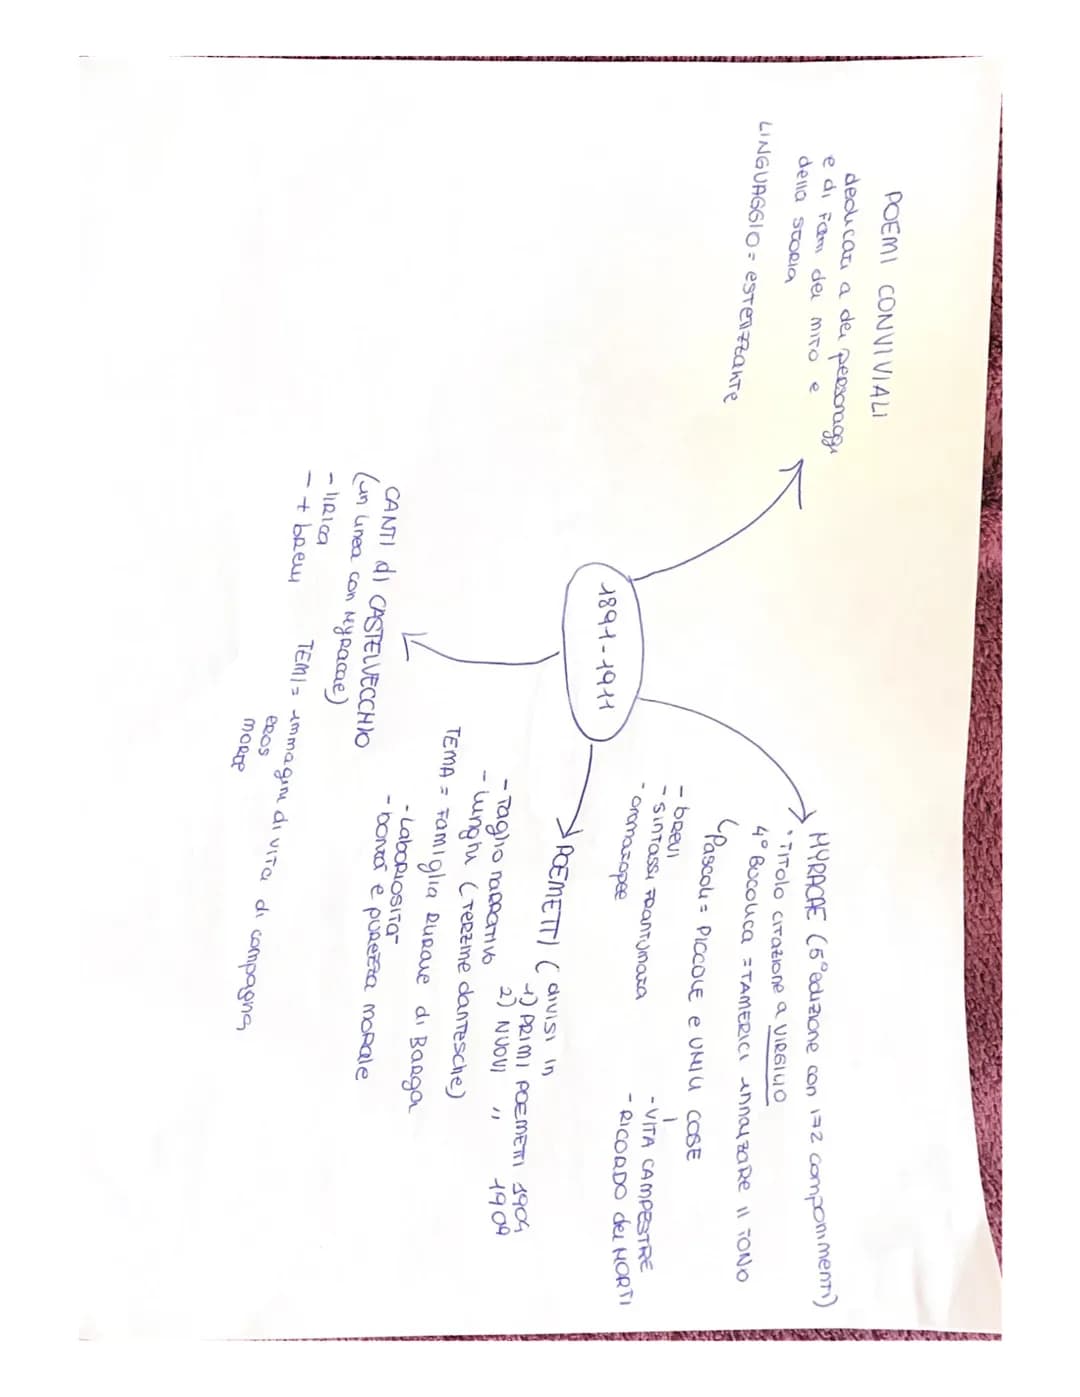 POEMI CONVIVIALI
dedicati a dei personaggi
e di fam dei mito e
della STORIA
LINGUAGGIO = ESTETIZZANTE
1891-1911
MYRACAE (5° edizione con 172 componimenti)
• TITOLO CITAZIONE a VIRGILIO
4° BUCOLICA = TAMERICI innalzare il TONO
Pascoli = PICCOLE e UMILI COSE
- BREVI
- SINTASSI FRANTUMATA
- onomatopee
- VITA CAMPESTRE
- RICORDO dei MORTI
POEMETTI ( divisi in
1) PRIMI POEMETTI 1904
2) NUOVI " 1909
- Taglio narrativo
- lunghi ( TERZINE dantesche)
TEMA = Famiglia RURALE di Barga
- LaboRIOSITA'
- bontà e PUREZZA morale
CANTI di CASTELVECCHIO
(in linea con Myracae)
- lirica
- + brevi
TEMI = immagini di vita di campagna
EROS
MORTE